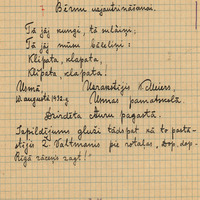 Bērnu uzjautrināšanai.
Tā jāj kungi, tā cilāini;
Tā jāj mūsu bāleliņi:
Klipata, klapata,
Klipata, klapata!
Usmā, Uzrakstījis
10. augustā 1932. g. Usmas pamatskolā.
Dzirdēta pagastā.
Izpildījums gluži tādspat kā to posta-
stījis Z. Valtmanis pie rotaļas „Dop, dop
Rīgā rācenis zagt!”